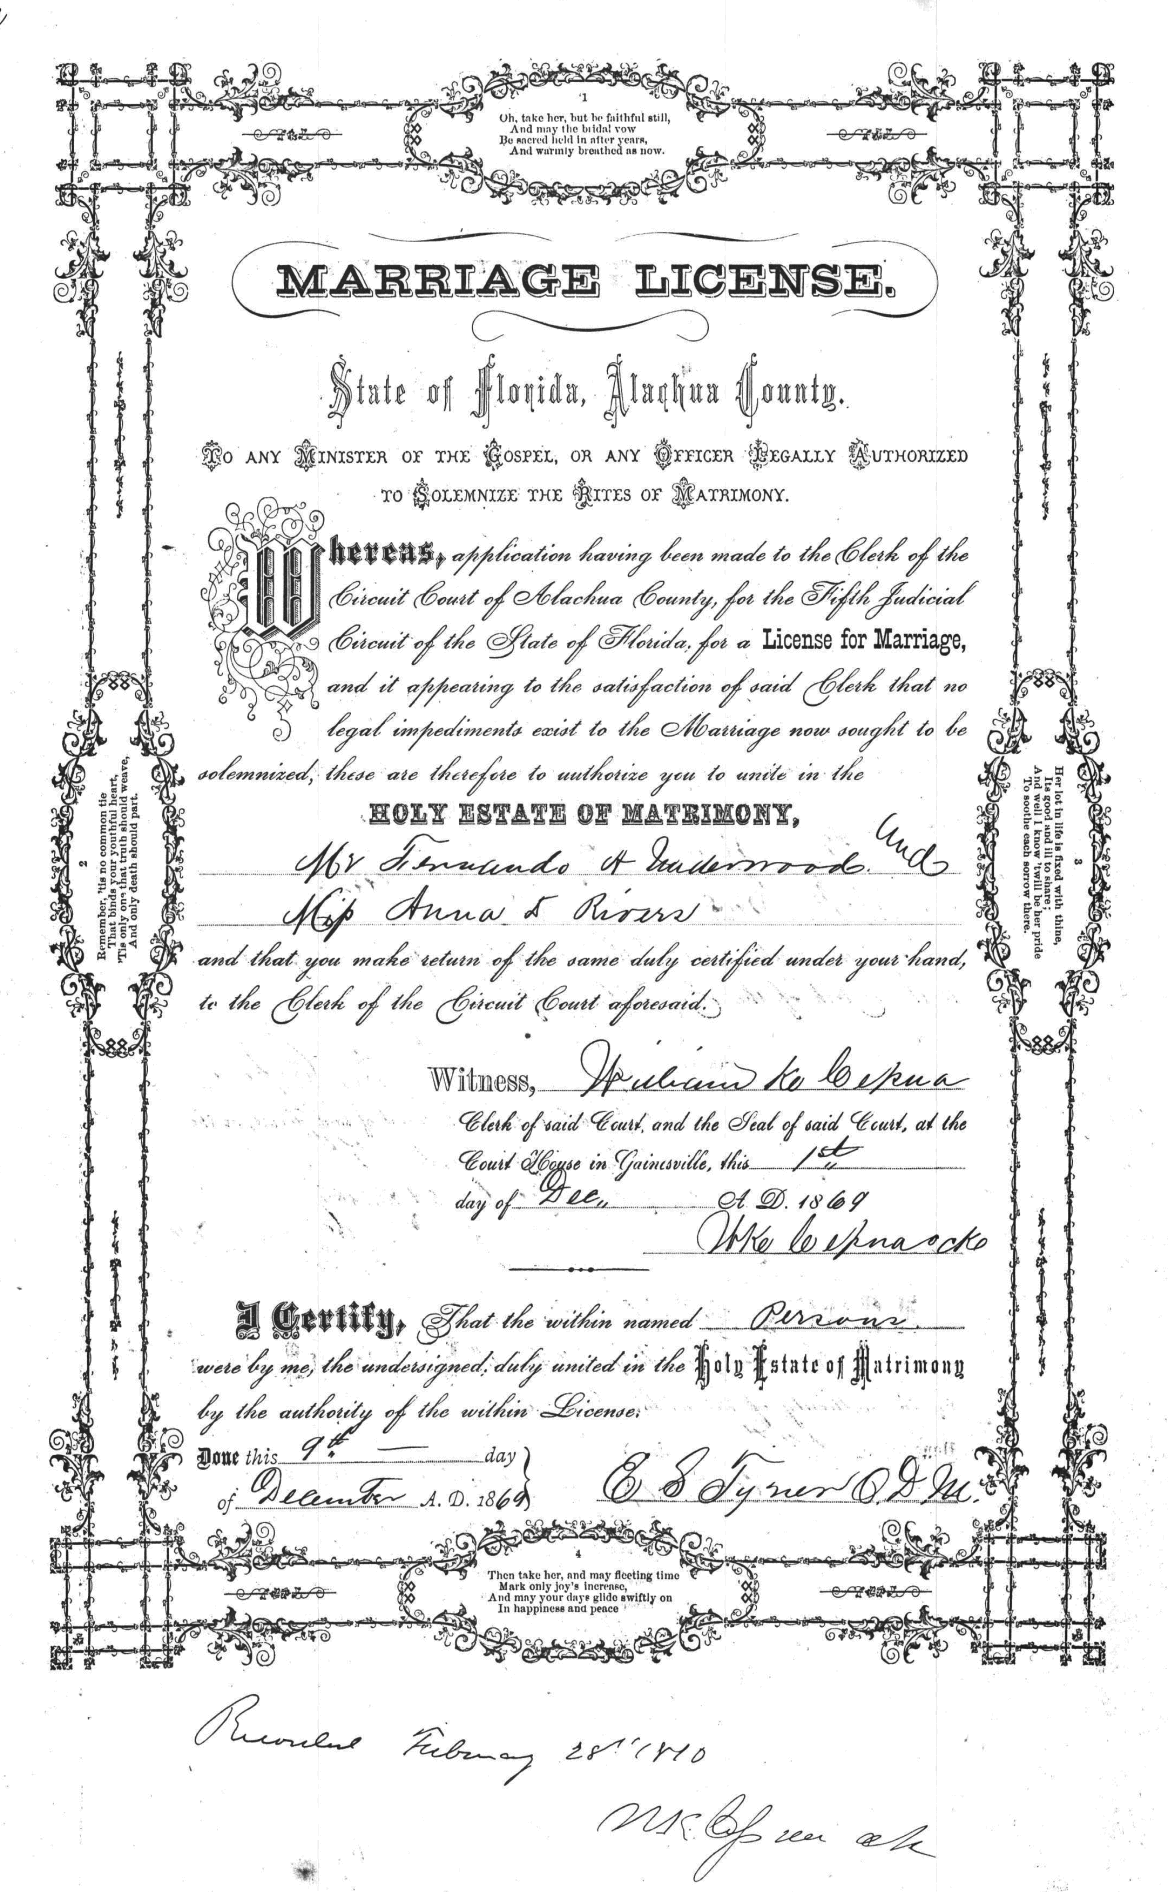 1
Oh, take her, but be faithful still,
And may the bidal vow
Be sacred held in after years,
And warmly breathed as now.
MARRIAGE LICENSE.
State of Florida, Alachua County.
TO ANY MINISTER OF THE GOSPEL, OR ANY OFFICER LEGALLY AUTHORIZED
TO SOLEMNIZE THE RITES OF MATRIMONY.
Whereas, application having been made to the Clerk of the
Circuit Court of Alachua County, for the Fifth Judicial
Circuit of the State of Florida, for a License for Marriage,
and it appearing to the satisfaction of said Clerk that no
legal impediments exist to the Marriage now sought to be
solemnized, these are therefore to authorize you to unite in the
HOLY ESTATE OF MATRIMONY,
Mr Fernando A Underwood and
Miss Anna Rivers
and that you make return of the same duly certified under your hand,
to the Clerk of the Circuit Court aforesaid.
2
Remember, 'tis no common tie
That binds your youthful heart,
'Tis only one that truth should weave,
And only death should part.
3
Her lot in life is fixed with thine,
Its good and ill to share;
And well I know 'twill be her pride
To soothe each sorrow there.
Witness, William K Cessna
Clerk of said Court, and the Seal of said Court, at the
Court House in Gainesville, this 1st
day of Dec, A. D. 1869
WK Cessna
I Certify, That the within named Persons
were by me, the undersigned, duly united in the Holy Estate of Matrimony
by the authority of the within License.
Done this 9th day
of December A. D. 1869
E S Tyner O. D. M.
4
Then take her, and may fleeting time
Mark only joy's increase,
And may your days glide swiftly on
In happiness and peace
Recorded February 28th 1870
WK Cessna clk